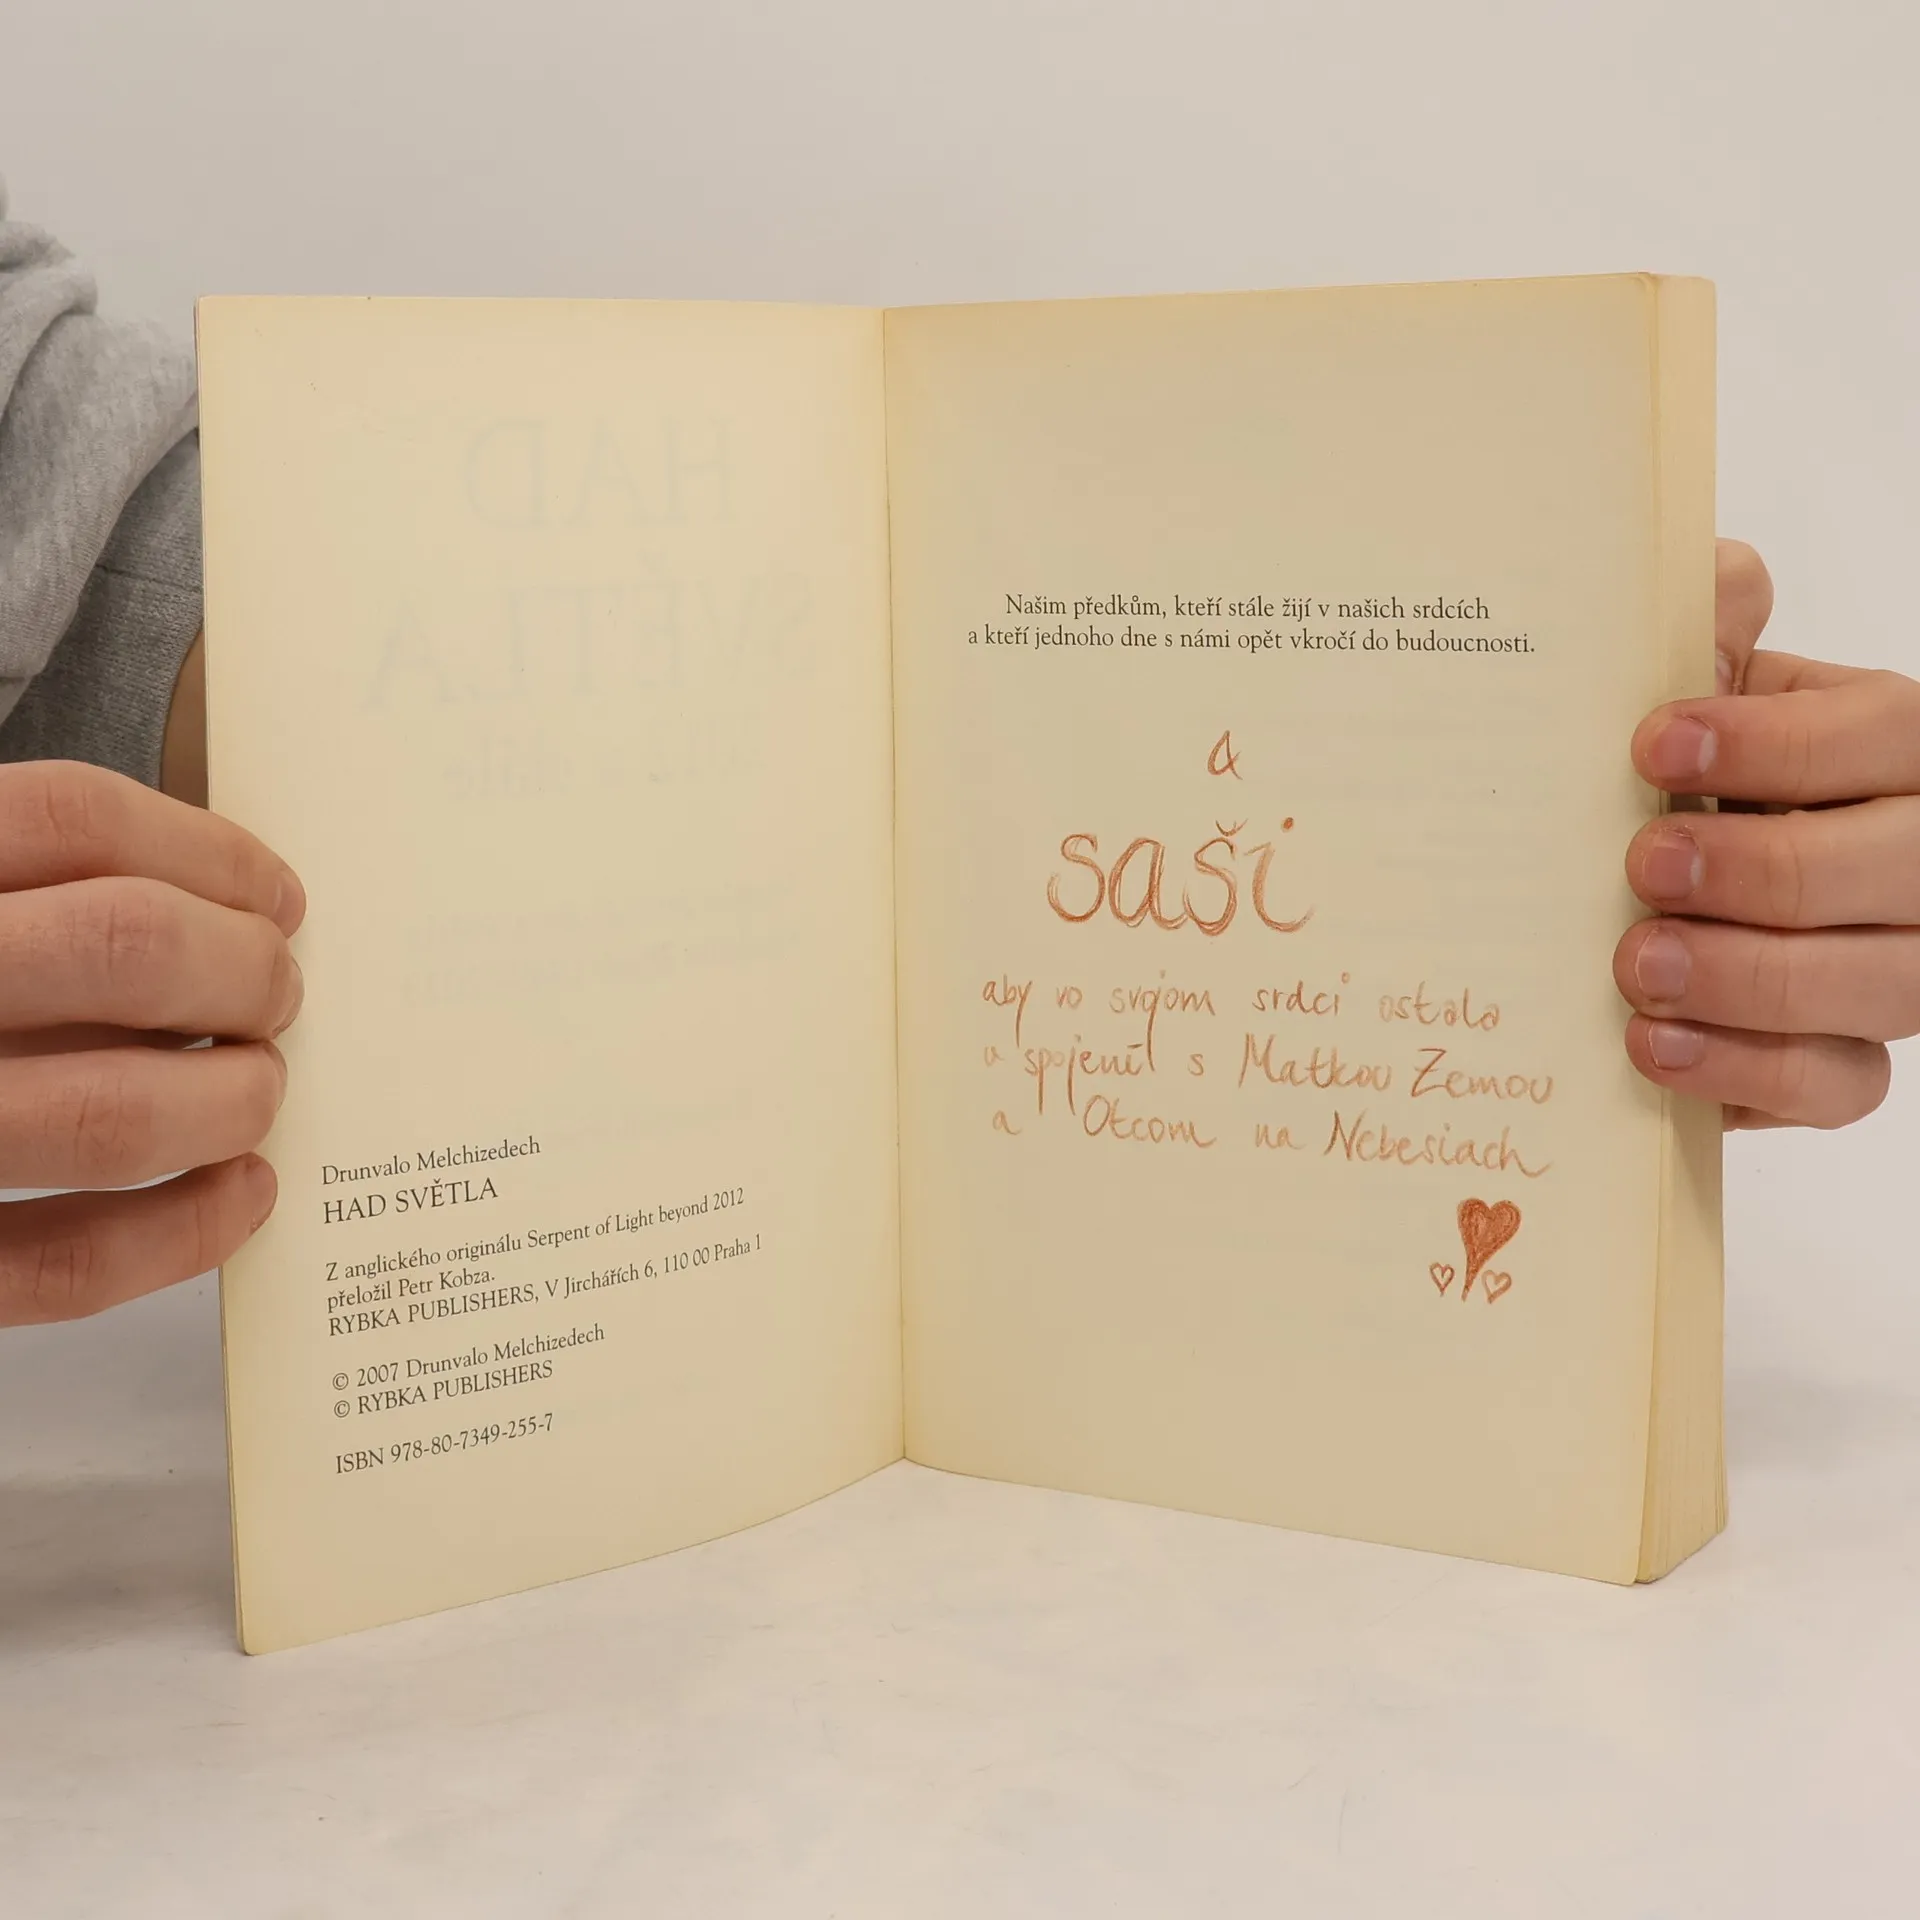 Drunvalo Melchizedech
HAD SVĚTLA
Z anglického originálu Serpent of Light beyond 2012
přeložil Petr Kobza.
RYBKA PUBLISHERS, V Jirchářích 6, 110 00 Praha 1
© 2007 Drunvalo Melchizedech
© RYBKA PUBLISHERS
ISBN 978-80-7349-255-7
Našim předkům, kteří stále žijí v našich srdcích
a kteří jednoho dne s námi opět vkročí do budoucnosti.
a
saši
aby vo svojom srdci ostala
v spojení s Matkou Zemou
a Otcom na Nebesiach